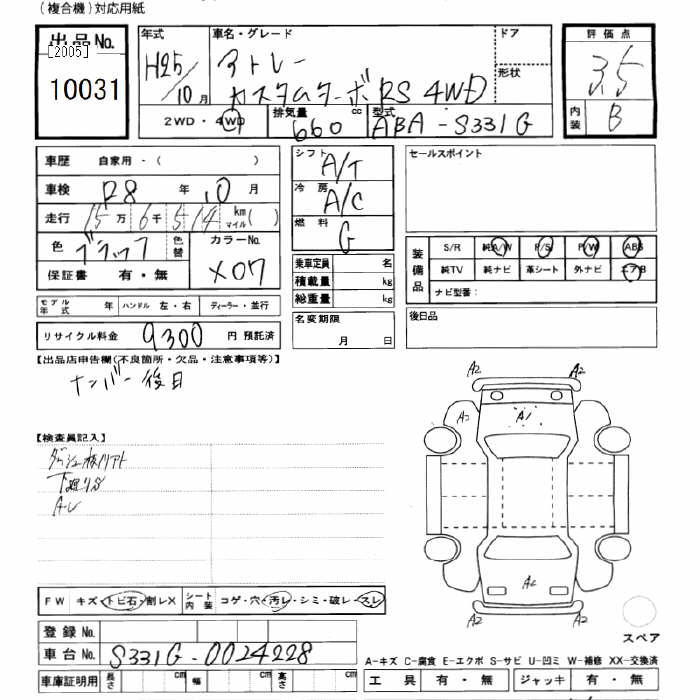 (複合機)対応用紙
出品No. [2005] 10031
年式 H25/10月
車名・グレード アトレー カスタムターボRS 4WD
ドア
形状
評価点 3.5
内装 B
2WD・4WD 排気量 660 cc 型式 ABA-S331G
車歴 自家用・( )
車検 R8年10月
走行 15万6千514 km マイル( )
色 ブラック 色替 カラーNo. X07
保証書 有・無
シフト A/T
冷房 A/C
燃料 G
乗車定員 名
積載量 kg
総重量 kg
名変期限 月 日
セールスポイント
装備品 S/R 純A/W P/S P/W ABS
純TV 純ナビ 革シート 外ナビ エアB
ナビ型番:
後日品
モデル年式 年 ハンドル 左・右 ディーラー・並行
リサイクル料金 9300 円 預託済
【出品店申告欄(不良箇所・欠品・注意事項等)】
ナンバー後日
A2 A2
A2 A1
【検査員記入】
下廻りS
A2
A2 A2
FW キズ・トビ石・割レX シート内装 コゲ・穴・汚レ・シミ・破レ・スレ
登録No.
車台No. S331G-0024228
車庫証明用 長さ cm 幅 cm 高さ cm
スペア
A-キズ C-腐食 E-エクボ S-サビ U-凹ミ W-補修 XX-交換済
工具 有・無 ジャッキ 有・無